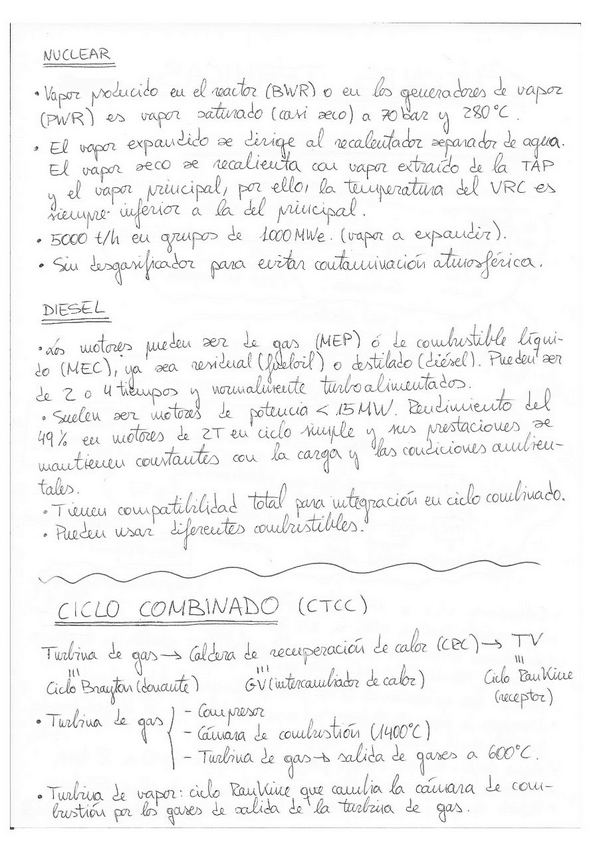 NUCLEAR
• Vapor producido en el reactor (BWR) o en los generadores de vapor
(PWR) es vapor saturado (casi seco) a 70 bar y 280°C.
• El vapor expandido se dirige al recalentador separador de agua.
El vapor seco se recalienta con vapor extraído de la TAP
y el vapor principal, por ello, la temperatura del VRC es
siempre inferior a la del principal.
• 5000 t/h en grupos de 1000 MWe. (vapor a expandir).
• Sin desgasificador para evitar contaminación atmosférica.
DIESEL
• Los motores pueden ser de gas (MEP) ó de combustible líqui-
do (MEC), ya sea residual (fueloil) o destilado (diésel). Pueden ser
de 2 o 4 tiempos y normalmente turboalimentados.
• Suelen ser motores de potencia < 15 MW. Rendimiento del
49% en motores de 2T en ciclo simple y sus prestaciones se
mantienen constantes con la carga y las condiciones ambien-
tales.
• Tienen compatibilidad total para integración en ciclo combinado.
• Pueden usar diferentes combustibles.
CICLO COMBINADO (CTCC)
Turbina de gas → Caldera de recuperación de calor (CRC) → TV
Ciclo Brayton (donante) GV (intercambiador de calor) Ciclo Rankine
(receptor)
• Turbina de gas
- Compresor
- Cámara de combustión (1400°C)
- Turbina de gas → salida de gases a 600°C.
• Turbina de vapor: ciclo Rankine que cambia la cámara de com-
bustión por los gases de salida de la turbina de gas.